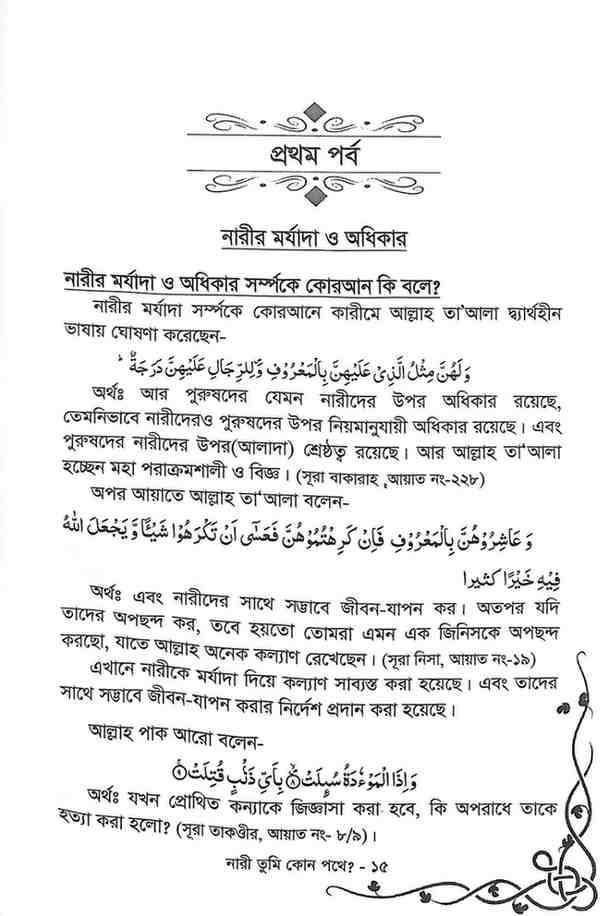 প্রথম পর্ব
নারীর মর্যাদা ও অধিকার
নারীর মর্যাদা ও অধিকার সর্ম্পকে কোরআন কি বলে?
নারীর মর্যাদা সর্ম্পকে কোরআনে কারীমে আল্লাহ তা'আলা দ্ব্যর্থহীন
ভাষায় ঘোষণা করেছেন-
وَلَهُنَّ مِثْلُ الَّذِیْ عَلَیْهِنَّ بِالْمَعْرُوْفِ وَلِلرِّجَالِ عَلَیْهِنَّ دَرَجَةٌ ؕ
অর্থঃ আর পুরুষদের যেমন নারীদের উপর অধিকার রয়েছে,
তেমনিভাবে নারীদেরও পুরুষদের উপর নিয়মানুযায়ী অধিকার রয়েছে। এবং
পুরুষদের নারীদের উপর(আলাদা) শ্রেষ্ঠত্ব রয়েছে। আর আল্লাহ তা'আলা
হচ্ছেন মহা পরাক্রমশালী ও বিজ্ঞ। (সূরা বাকারাহ ,আয়াত নং-২২৮)
অপর আয়াতে আল্লাহ তা'আলা বলেন-
وَ عَاشِرُوْهُنَّ بِالْمَعْرُوْفِ فَاِنْ كَرِهْتُمُوْهُنَّ فَعَسٰۤی اَنْ تَكْرَهُوْا شَیْـًٔا وَّ یَجْعَلَ اللّٰهُ
فِیْهِ خَیْرًا كَثِیرا
অর্থঃ এবং নারীদের সাথে সদ্ভাবে জীবন-যাপন কর। অতপর যদি
তাদের অপছন্দ কর, তবে হয়তো তোমরা এমন এক জিনিসকে অপছন্দ
করছো, যাতে আল্লাহ অনেক কল্যাণ রেখেছেন। (সূরা নিসা, আয়াত নং-১৯)
এখানে নারীকে মর্যাদা দিয়ে কল্যাণ সাব্যস্ত করা হয়েছে। এবং তাদের
সাথে সদ্ভাবে জীবন-যাপন করার নির্দেশ প্রদান করা হয়েছে।
আল্লাহ পাক আরো বলেন-
وَاِذَا الْمَوْءٗدَةُ سُىِٕلَتْ۪ۙ۸ بِاَیِّ ذَنْۢبٍ قُتِلَتْۚ۹
অর্থঃ যখন প্রোথিত কন্যাকে জিজ্ঞাসা করা হবে, কি অপরাধে তাকে
হত্যা করা হলো? (সূরা তাকওীর, আয়াত নং- ৮/৯)।
নারী তুমি কোন পথে? - ১৫